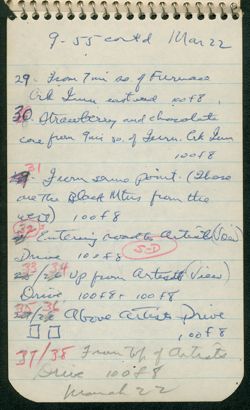 9-55 cont'd Mar 22
29- From 7 mi so. of Furnace
Crk Inn eastward 100 f 8,
30. Strawberry and chocolate
cone from 9 mi so. of Furn. Crk Inn
100 f 8
31
From same point. (These
are the Black Mtns from the
west) 100 f 8
32 Entering road to Artists (View)
Drive 100 f 8 5-D
33 34
Up from Artists (View)
Drive 100 f 8 + 100 f 8
35 36
Above Artists Drive
100 f 8
37/38 From top of Artists
Drive 100 f 8
March 22